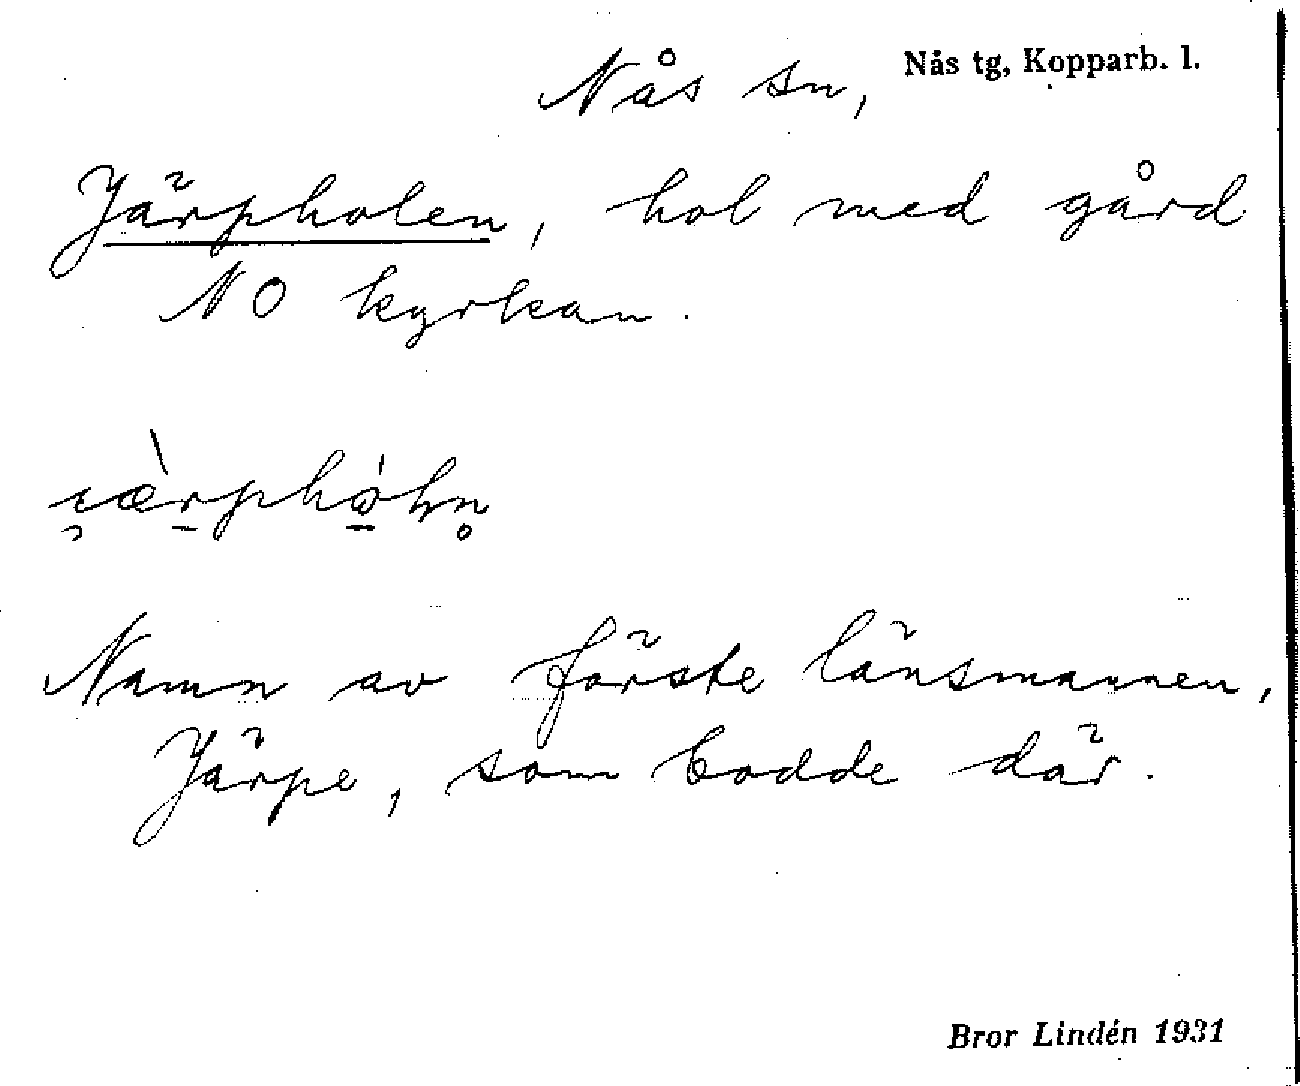 Nås sn, Nås tg, Kopparb. l.
Järpholen, hol med gård
NO kyrkan.
Namn av förste länsmannen,
Järpe, som bodde där.
Bror Lindén 1931